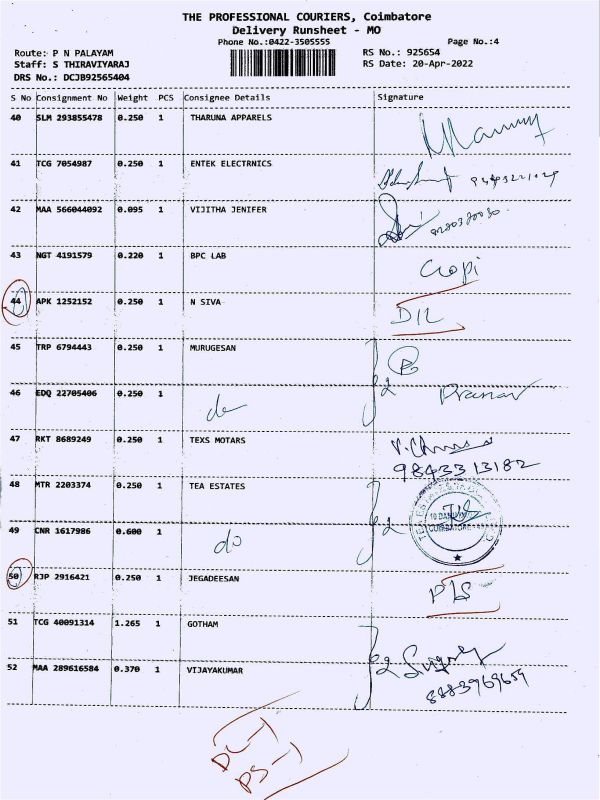 THE PROFESSIONAL COURIERS, Coimbatore
Delivery Runsheet - MO
Phone No.:0422-3505555 Page No.:4
Route: P N PALAYAM RS No.: 925654
Staff: S THIRAVIYARAJ RS Date: 20-Apr-2022
DRS No.: DCJB92565404
S No Consignment No Weight PCS Consignee Details Signature
40 SLM 293855478 0.250 1 THARUNA APPARELS
41 TCG 7054987 0.250 1 ENTEK ELECTRNICS
42 MAA 566044092 0.095 1 VIJITHA JENIFER
43 NGT 4191579 0.220 1 BPC LAB Gopi
44 APK 1252152 0.250 1 N SIVA D/L
45 TRP 6794443 0.250 1 MURUGESAN
46 EDQ 22705406 0.250 1 do Pranav
47 RKT 8689249 0.250 1 TEXS MOTARS
9843313182
48 MTR 2203374 0.250 1 TEA ESTATES
49 CNR 1617986 0.600 1 do
50 RJP 2916421 0.250 1 JEGADEESAN
51 TCG 40091314 1.265 1 GOTHAM
52 MAA 289616584 0.370 1 VIJAYAKUMAR
8883969659
DL-1
PS-1